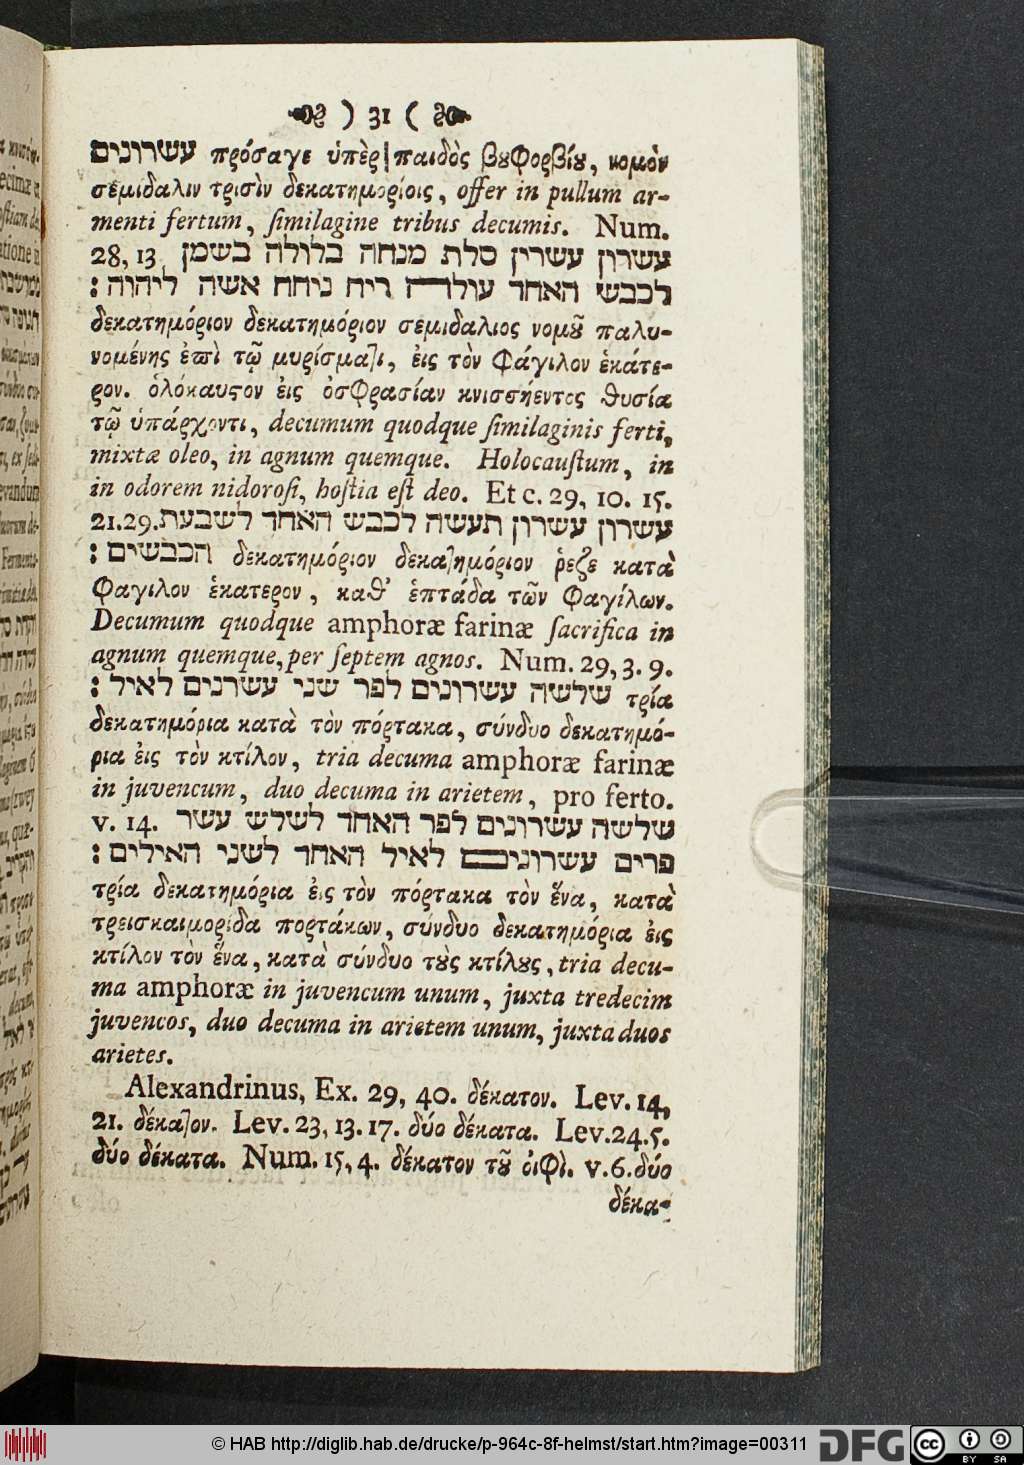 ) 31 (
עשרונים πρόσαγε ὑπὲρ παιδὸς βȣφορβίȣ, νομὸν
σεμίδαλιν τρισὶν δεκατημορίοις, offer in pullum ar-
menti fertum, ſimilagine tribus decumis. Num.
28, 13 עשרון עשרין סלת מנחה בלולה בשמן
לכבש האחד עולה ריח ניחח אשה ליהוה :
δεκατημόριον δεκατημόριον σεμιδάλιος νομȣ͂ παλυ-
νομένης ἐπὶ τῷ μυρίσμαἿι, ἐις τὸν φάγιλον ἑκάτε-
ρον. ὁλόκαυϛον ἐις ὀσφρασίαν κνισσήεντος θυσία
τῷ ὑπάρχοντι, decumum quodque ſimilaginis ferti,
mixtæ oleo, in agnum quemque. Holocauſtum, in
in odorem nidoroſi, hoſtia eſt deo. Et c. 29, 10. 15.
21.29. עשרון עשרון תעשה לכבש האחד לשבעת
הכבשים : δεκατημόριον δεκατημόριον ῥέζε κατὰ
φάγιλον ἑκάτερον, καθ' ἑπτάδα τῶν φαγίλων.
Decumum quodque amphoræ farinæ ſacrifica in
agnum quemque, per ſeptem agnos. Num. 29, 3. 9.
שלשה עשרונים לפר שני עשרנים לאיל : τρία
δεκατημόρια κατὰ τὸν πόρτακα, σύνδυο δεκατημό-
ρια ἐις τὸν κτίλον, tria decuma amphoræ farinæ
in juvencum, duo decuma in arietem, pro ferto.
v. 14. שלשה עשרונים לפר האחד לשלש עשר
פרים עשרונים לאיל האחד לשני האילים :
τρία δεκατημόρια ἐις τὸν πόρτακα τὸν ἕνα, κατὰ
τρεισκαιμορίδα πορτάκων, σύνδυο δεκατημόρια ἐις
κτίλον τὸν ἕνα, κατὰ σύνδυο τȣ̀ς κτίλȣς, tria decu-
ma amphoræ in juvencum unum, juxta tredecim
juvencos, duo decuma in arietem unum, juxta duos
arietes.
Alexandrinus, Ex. 29, 40. δέκατον. Lev. 14,
21. δέκατον. Lev. 23, 13. 17. δύο δέκατα. Lev. 24. 5.
δύο δέκατα. Num. 15, 4. δέκατον τȣ͂ ὀιφὶ. v. 6. δύο
δέκα-
© HAB http://diglib.hab.de/drucke/p-964c-8f-helmst/start.htm?image=00311
DFG
cc
BY SA